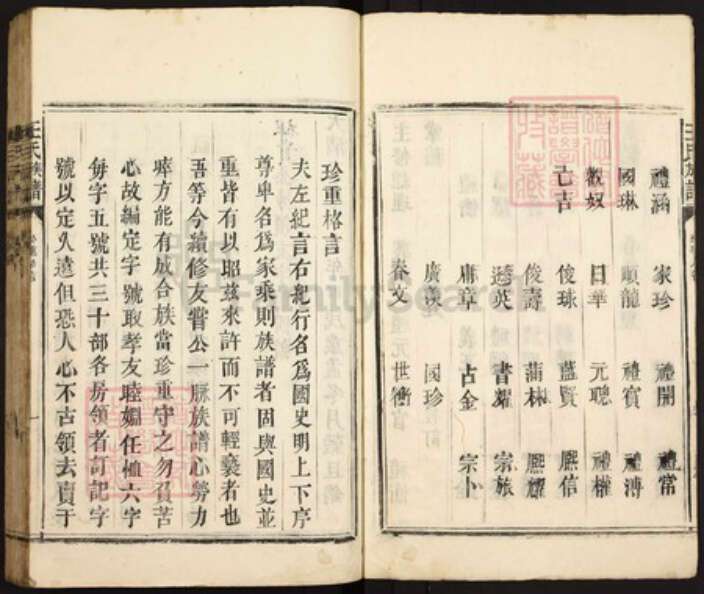 王氏族譜
禮涵 家珍 禮開 禮常
國琳 順龍 禮賓 禮溥
數奴 日華 元聰 禮權
亡吉 俊球 藍賢 熈信
俊壽 蒲林 熈耀
逵英 書耀 宗旅
庸章 占金 宗卜
廣漢 國珍
春文 世衡
珍重格言
夫左紀言右紀行名爲國史明上下序
尊卑名爲家乘則族譜者固與國史並
重皆有以昭兹來許而不可輕褻者也
吾等今續修友嘗公一脉族譜心勞力
瘁方能有成合族當珍重守之勿負苦
心故編定字號取孝友睦婣任恤六字
每字五號共三十部各房領者訂記字
號以定久遠但恐人心不古領去賣于
王氏族譜
FamilySearch